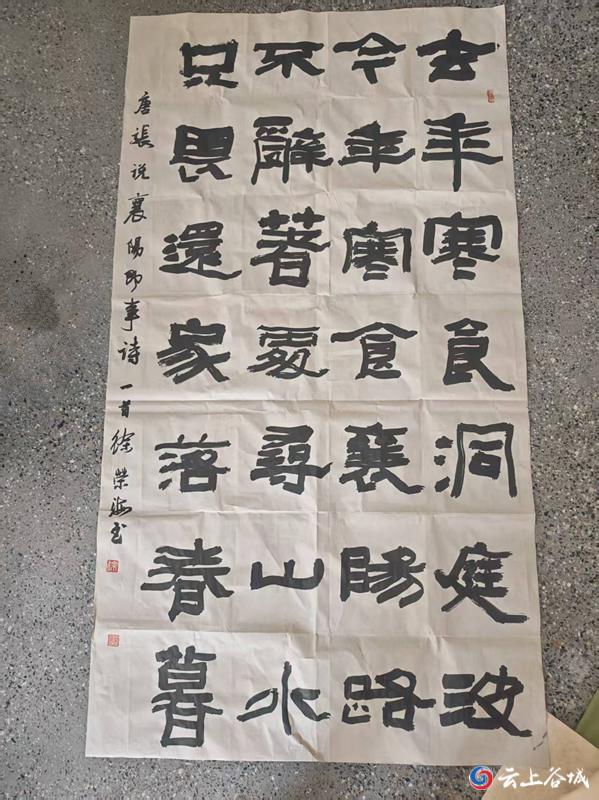 去年寒食洞庭波
今年寒食襄陽路
不辭著處尋山水
只畏還家落春暮
唐張说襄陽即事诗一首徐榮
云上谷城